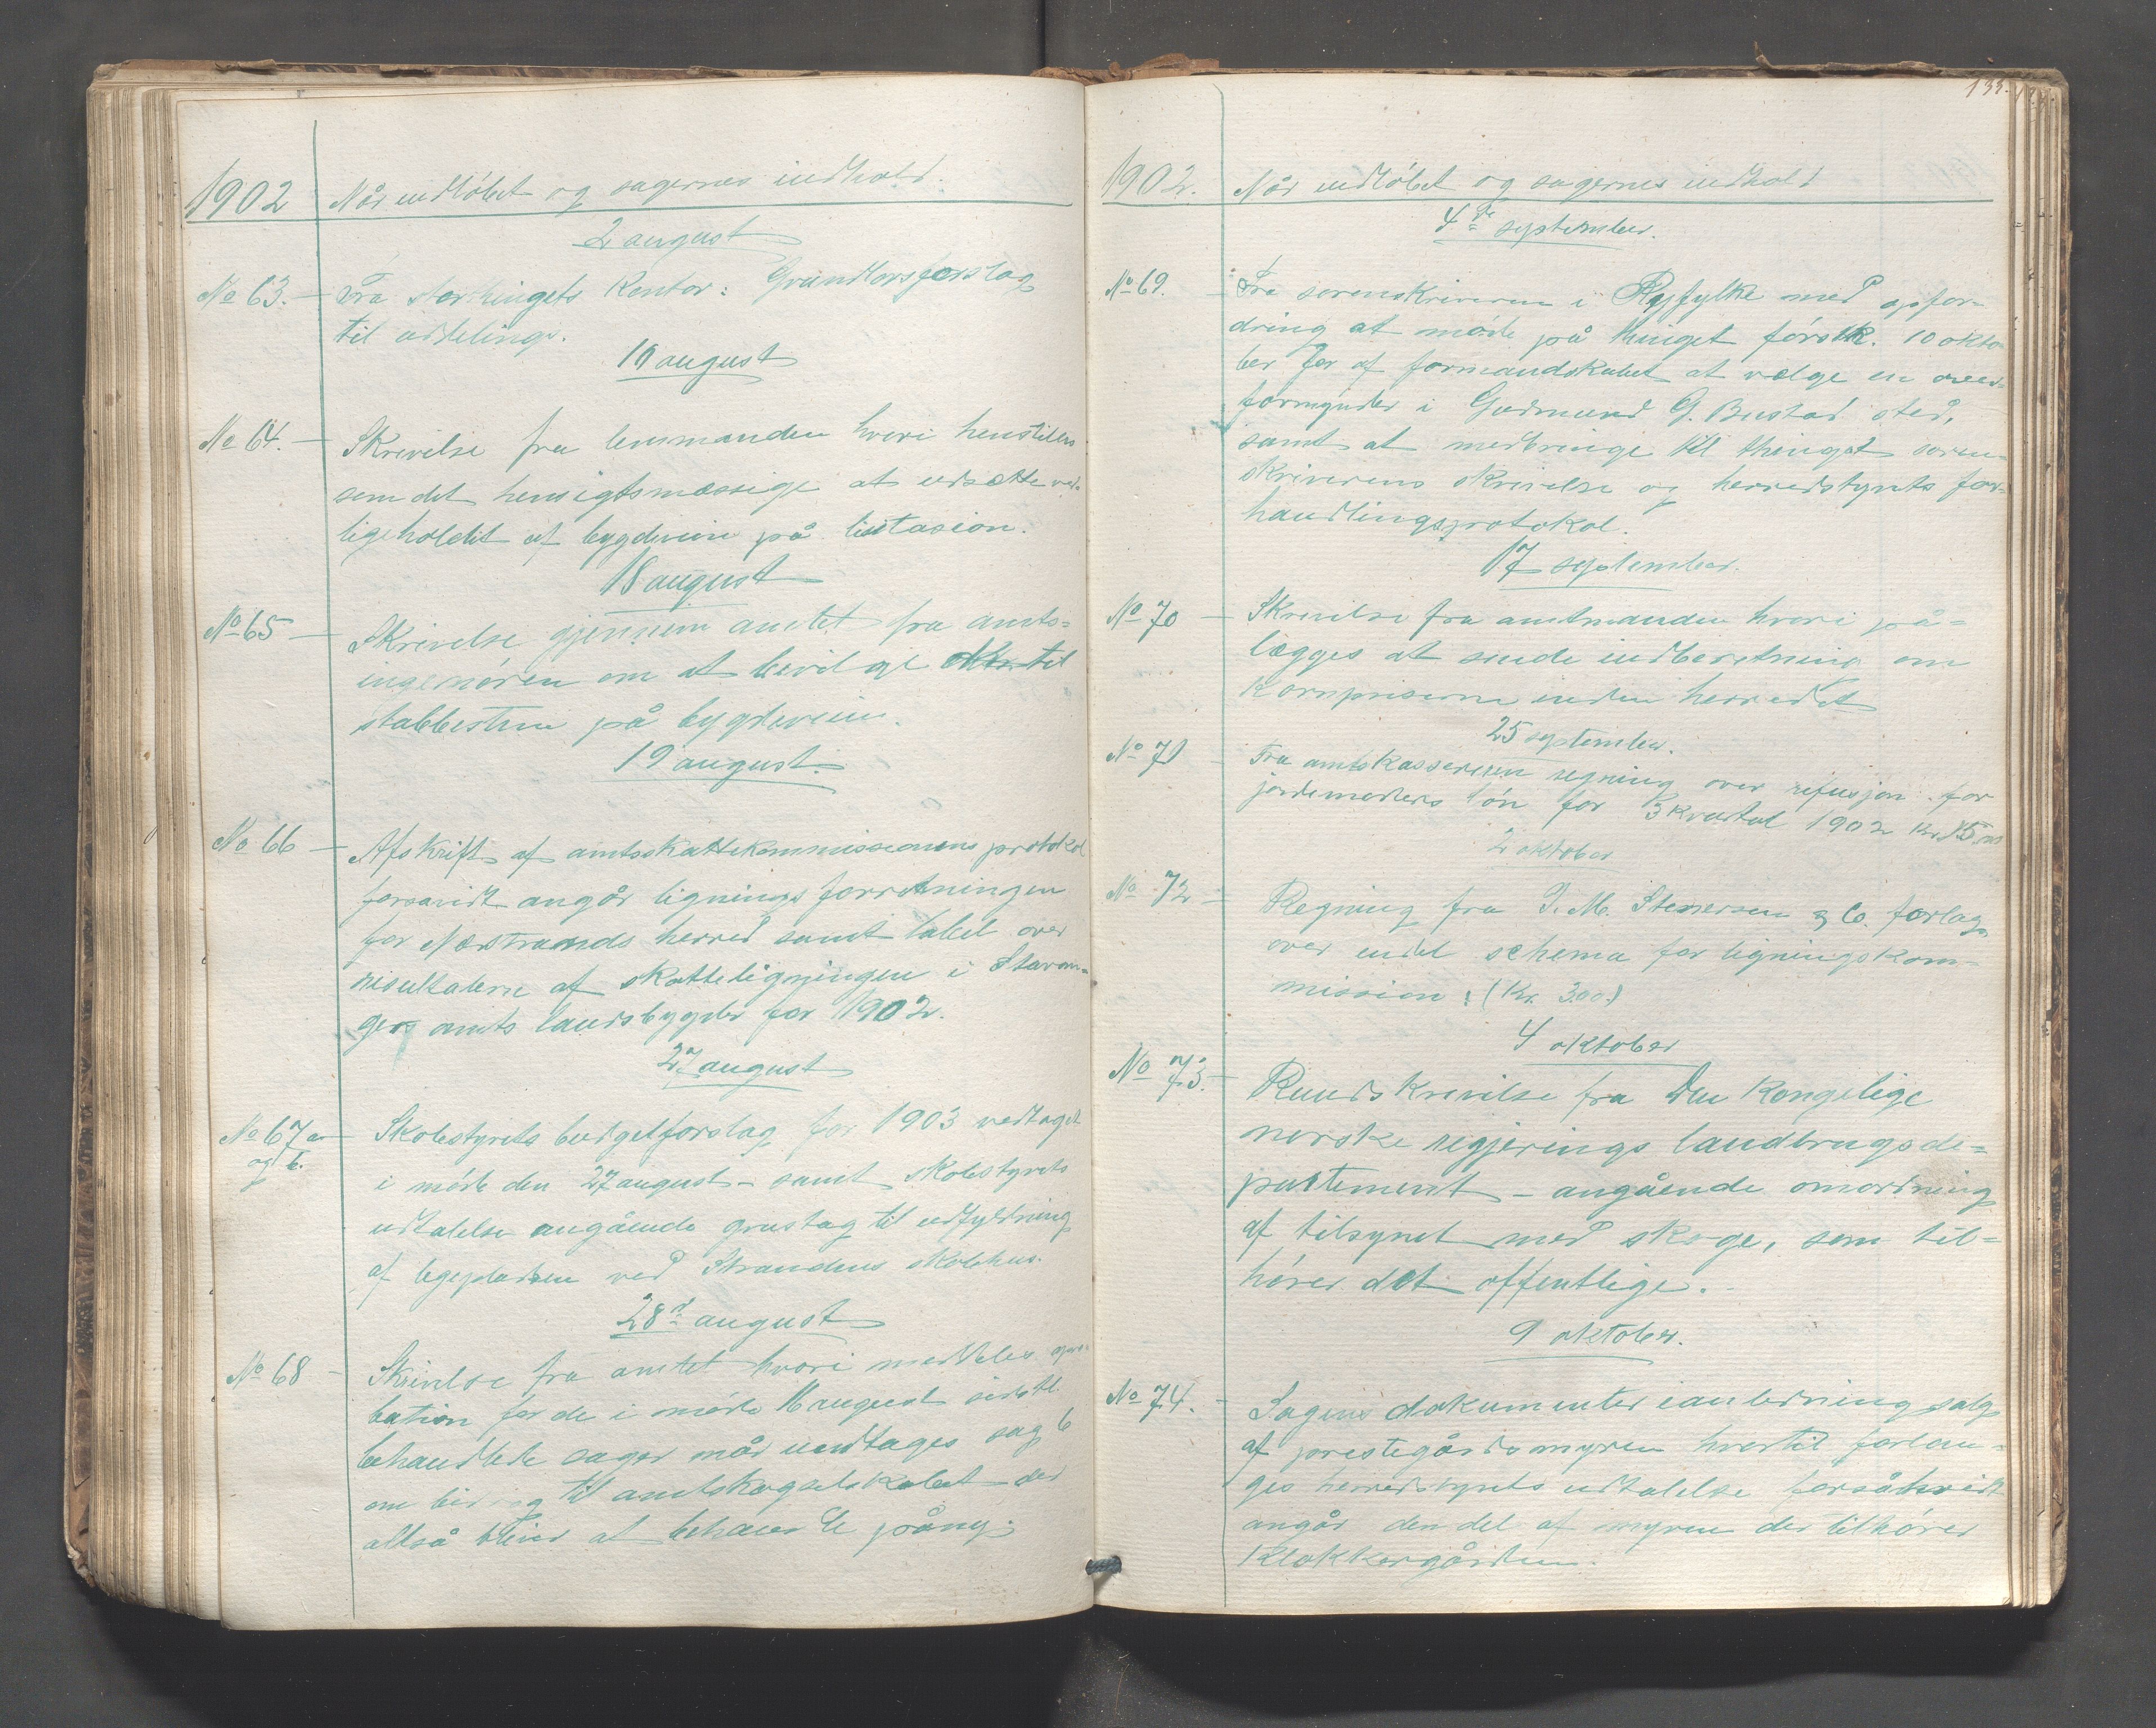 1902 Når indløbet og sagernes indhold.
2 august
No 63. — Fra stortingets Kontor: Grundlovsforslag
til uddelings.
11 august
No 64. — Skrivelse fra lensmanden hvori henstilles
som det hensigtsmæssige at udsætte ved-
ligeholdet af bygdeveie på lisitasion.
18 august
No 65 — Skrivelse gjennem amtet fra amts=
ingeniøren om at bevilge til
stabbestene på bygdeveien.
19 august.
No 66 — Afskrift af amtsskattekommissionens protokol
forsavidt angår ligningsforretningen
for Nærstrands herred samt tabel over
resultaterne af skatteligningen i Stavan-
gers amts landsbygder for 1902.
27 august
No 67 a — Skolestyrets budgetforslag for 1903 vedtaget
og b. i møde den 27 august - samt skolestyrets
udtalelse angående grustag til udfyldning
af legepladsen ved Strandens skolehus.
28d august
No 68 — Skrivelse fra amtet hvori meddeles apro-
bation for de i møde 11 august sidstl.
behandlede sager når undtages sag 6
om bidrag til amtskogselskabet der
altså bliver at behandle påny.
133.
1902. Når indløbet og sagernes indhold
4de september.
No 69. — Fra sorenskriveren i Ryfylke med opfor-
dring at møde på thinget førstk. 10 okto
ber for af formandskabet at vælge en over-
formynder i Gudmund G. Bustad sted,
samt at medbringe til thinget soren-
skriverens skrivelse og herredstyrets for-
handlingsprotokol.
17 september.
No 70 — Skrivelse fra amtmanden hvori på=
lægges at sende indberetning om
kornpriserne inden herredet
25 september.
No 71 — Fra amtskassereren regning over refusjon for
jordemoders løn for 3 kvartal 1902 Kr. 15.00
2 oktober
No 72 — Regning fra I. M. Stenersen & Co. forlag
over endel schema for ligningskom-
mission: (Kr. 3.00.)
4 oktober
No 73. — Rundskrivelse fra Den Kongelige
norske regjerings landbrugsde=
partement - angående omordning
af tilsynet med skoge, som til=
hører det offentlige.
9 oktober.
No 74. — Sagens dokumenter ianledning salg
af prestegårdsmyren hvortil forlan-
ges herredstyrets udtalelse forsåhvidt
angår den del af myren der tilhører
Klokkergården.